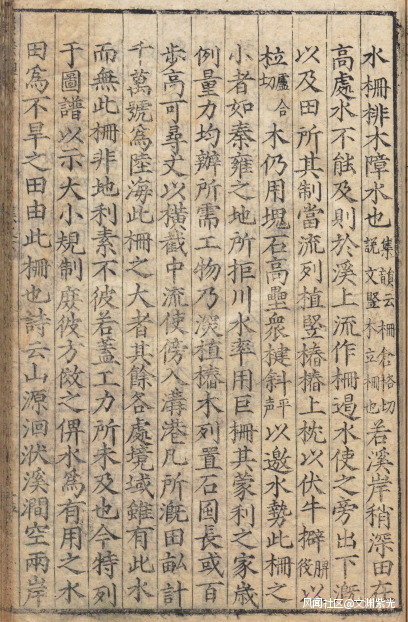 水柵排木障水也集韻云柵倉格切說文豎木立柵也若溪岸稍深田在
高處水不能及則於溪上流作柵遏水使之旁出下溉
以及田所其制當流列植豎樁樁上枕以伏牛擗以
柆盧合切木仍用塊石高壘衆楗斜平聲以邀水勢此柵之
小者如秦雍之地所拒川水率用巨柵其蒙利之家歲
例量力均辦所需工物乃深植樁木列置石囤長或百
步高可尋丈以橫截中流使傍入溝港凡所溉田畝計
千萬號為陸海此柵之大者其餘各處境域雖有此水
而無此柵非地利素不彼若蓋工力所未及也今特列
于圖譜以示大小規制庶彼方倣之俾水為有用之水
田為不旱之田由此柵也詩云山源洄洑溪澗空兩岸
风闻社区@文渊紫光